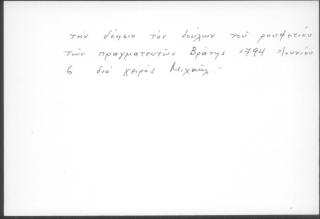 τὴν δέησιν τὸν δούλων τοῦ ρουφετίου
τῶν πραγματευτῶν Βράνης 1794 Ἰουνίου
6 διὰ χειρὸς Μιχαήλ.-